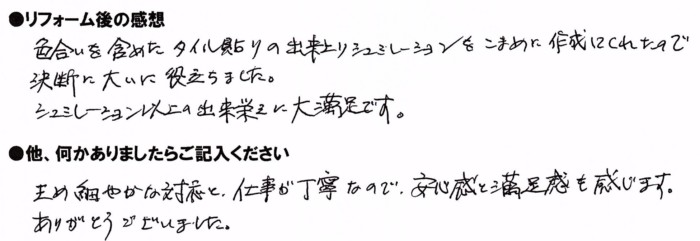 ●リフォーム後の感想
色合いを含めたタイル貼りの出来上りシュミレーションをこまめに作成してくれたので
決断に大いに役立ちました。
シュミレーション以上の出来栄えに大満足です。
●他、何かありましたらご記入ください
きめ細やかな対応と、仕事が丁寧なので、安心感と満足感を感じます。
ありがとうございました。